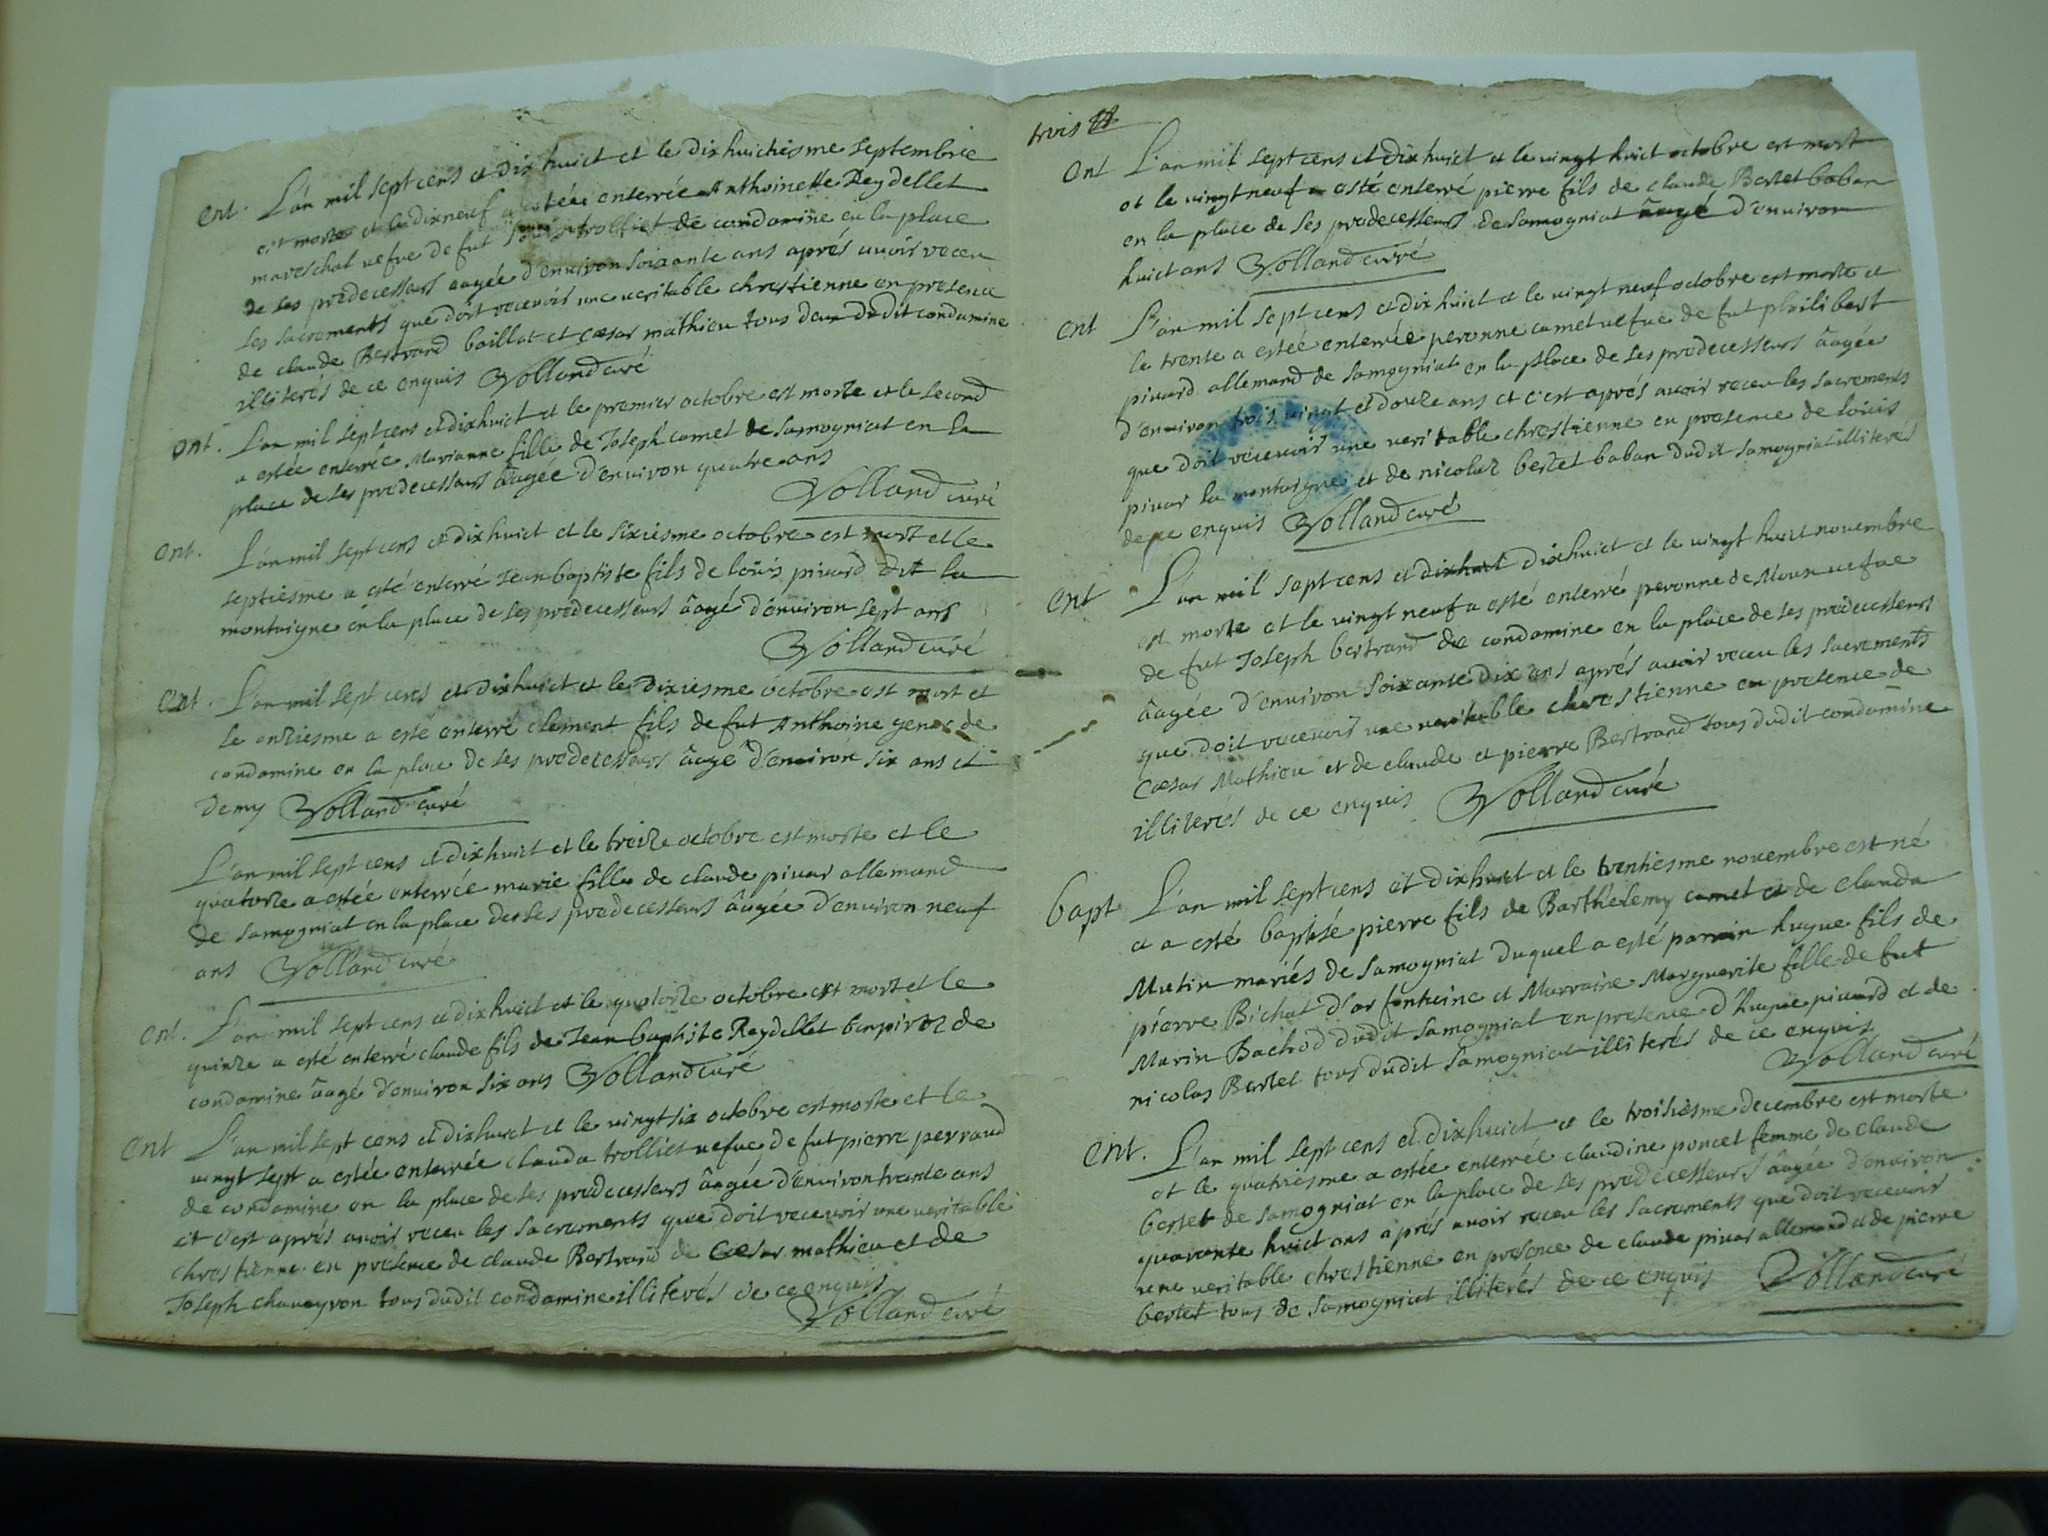 ent. L'an mil sept cens et dix huict et le dixhuictiesme septembre
est morte et le dixneuf a estée enterrée Anthoinette Reydellet
mareschal vefve de fut trolliet de condamine en la place
de ses predecesseurs aagée d'environ soixante ans aprés avoir receu
les sacrements que doit recevoir une veritable chrestienne en presence
de claude Bertrand baillat et cæsar mathieu tous deux dudit condamine
illiterés de ce enquis Volland curé
ent. L'an mil sept cens et dixhuict et le premier octobre est morte et le second
a estée enterrée Marianne fille de Joseph camet de samogniat en la
place de ses predecesseurs âagée d'environ quatre ans
Volland curé
ent. L'an mil sept cens et dixhuict et le sixiesme octobre est mort et le
septiesme a esté enterré Jean baptiste fils de loüis pivard dit la
montaigne en la place de ses predecesseurs âagé d'environ sept ans
Volland curé
ent. L'an mil sept cens et dixhuict et le dixiesme octobre est mort et
le onziesme a esté enterré clement fils de fut Anthoine de
condamine en la place de ses predecesseurs âagé d'environ six ans et
demy Volland curé
L'an mil sept cens et dixhuict et le treize octobre est morte et le
quatorze a estée enterrée marie fille de claude pivar allemand
de samogniat en la place de ses predecesseurs âagée d'environ neuf
ans Volland curé
ent. L'an mil sept cens et dixhuict et le quatorze octobre est mort et le
quinze a esté enterré claude fils de Jean baptiste Reydellet de
condamine âagé d'environ six ans Volland curé
ent L'an mil sept cens et dixhuict et le vingt six octobre est morte et le
vingt sept a estée enterrée clauda trolliet vefve de fut pierre perraud
de condamine en la place de ses predecesseurs âagée d'environ trante ans
et c'est aprés avoir receu les sacrements que doit recevoir une veritable
chrestienne en presence de claude Bertrand de Cæsar mathieu et de
Joseph chaveyron tous dudit condamine illiterés de ce enquis
Volland curé
trois
ent L'an mil sept cens et dixhuict et le vingt huict octobre est mort
et le vingt neuf a esté enterré pierre fils de claude Bertet baban
en la place de ses predecesseurs de samogniat âagé d'environ
huict ans Volland curé
ent L'an mil sept cens et dix huict et le vingt neuf octobre est morte et
le trente a estée enterrée peronne camet vefve de fut philibert
pivard allemand de samogniat en la place de ses predecesseurs âagée
d'environ trois vingt et douze ans et c'est aprés avoir receu les sacrements
que doit recevoir une veritable chrestienne en presence de loüis
pivar la montaigne et de nicolas bertet baban dudit samogniat illiterés
de ce enquis Volland curé
ent L'an mil sept cens et dixhuit dixhuict et le vingt huict novembre
est morte et le vingt neuf a esté enterré peronne de Moux vefve
de fut Joseph bertrand de condamine en la place de ses predecesseurs
âagée d'environ soixante dix ans aprés avoir receu les sacrements
que doit recevoir une veritable chrestienne en presence de
Cæsar Mathieu et de claude et pierre Bertrand tous dudit condamine
illiterés de ce enquis Volland curé
bapt L'an mil sept cens et dixhuict et le trentiesme novembre est né
et a esté baptisé pierre fils de Barthelemy camet et de clauda
Mutin mariés de samogniat duquel a esté parrain hugue fils de
pierre Bichat d'orfontaine et Marraine Marguerite fille de fut
Marin Bachod dudit samogniat en presence d'hugue pivard et de
nicolas Bertet tous dudit samogniat illiterés de ce enquis
Volland curé
ent. L'an mil sept cens et dixhuict et le troisiesme decembre est morte
et le quatriesme a estée enterrée claudine poncet femme de claude
bertet de samogniat en la place de ses predecesseurs âagée d'environ
quarante huict ans aprés avoir receu les sacrements que doit recevoir
une veritable chrestienne en presence de claude pivar allemand et de pierre
bertet tous de samogniat illiterés de ce enquis Volland curé